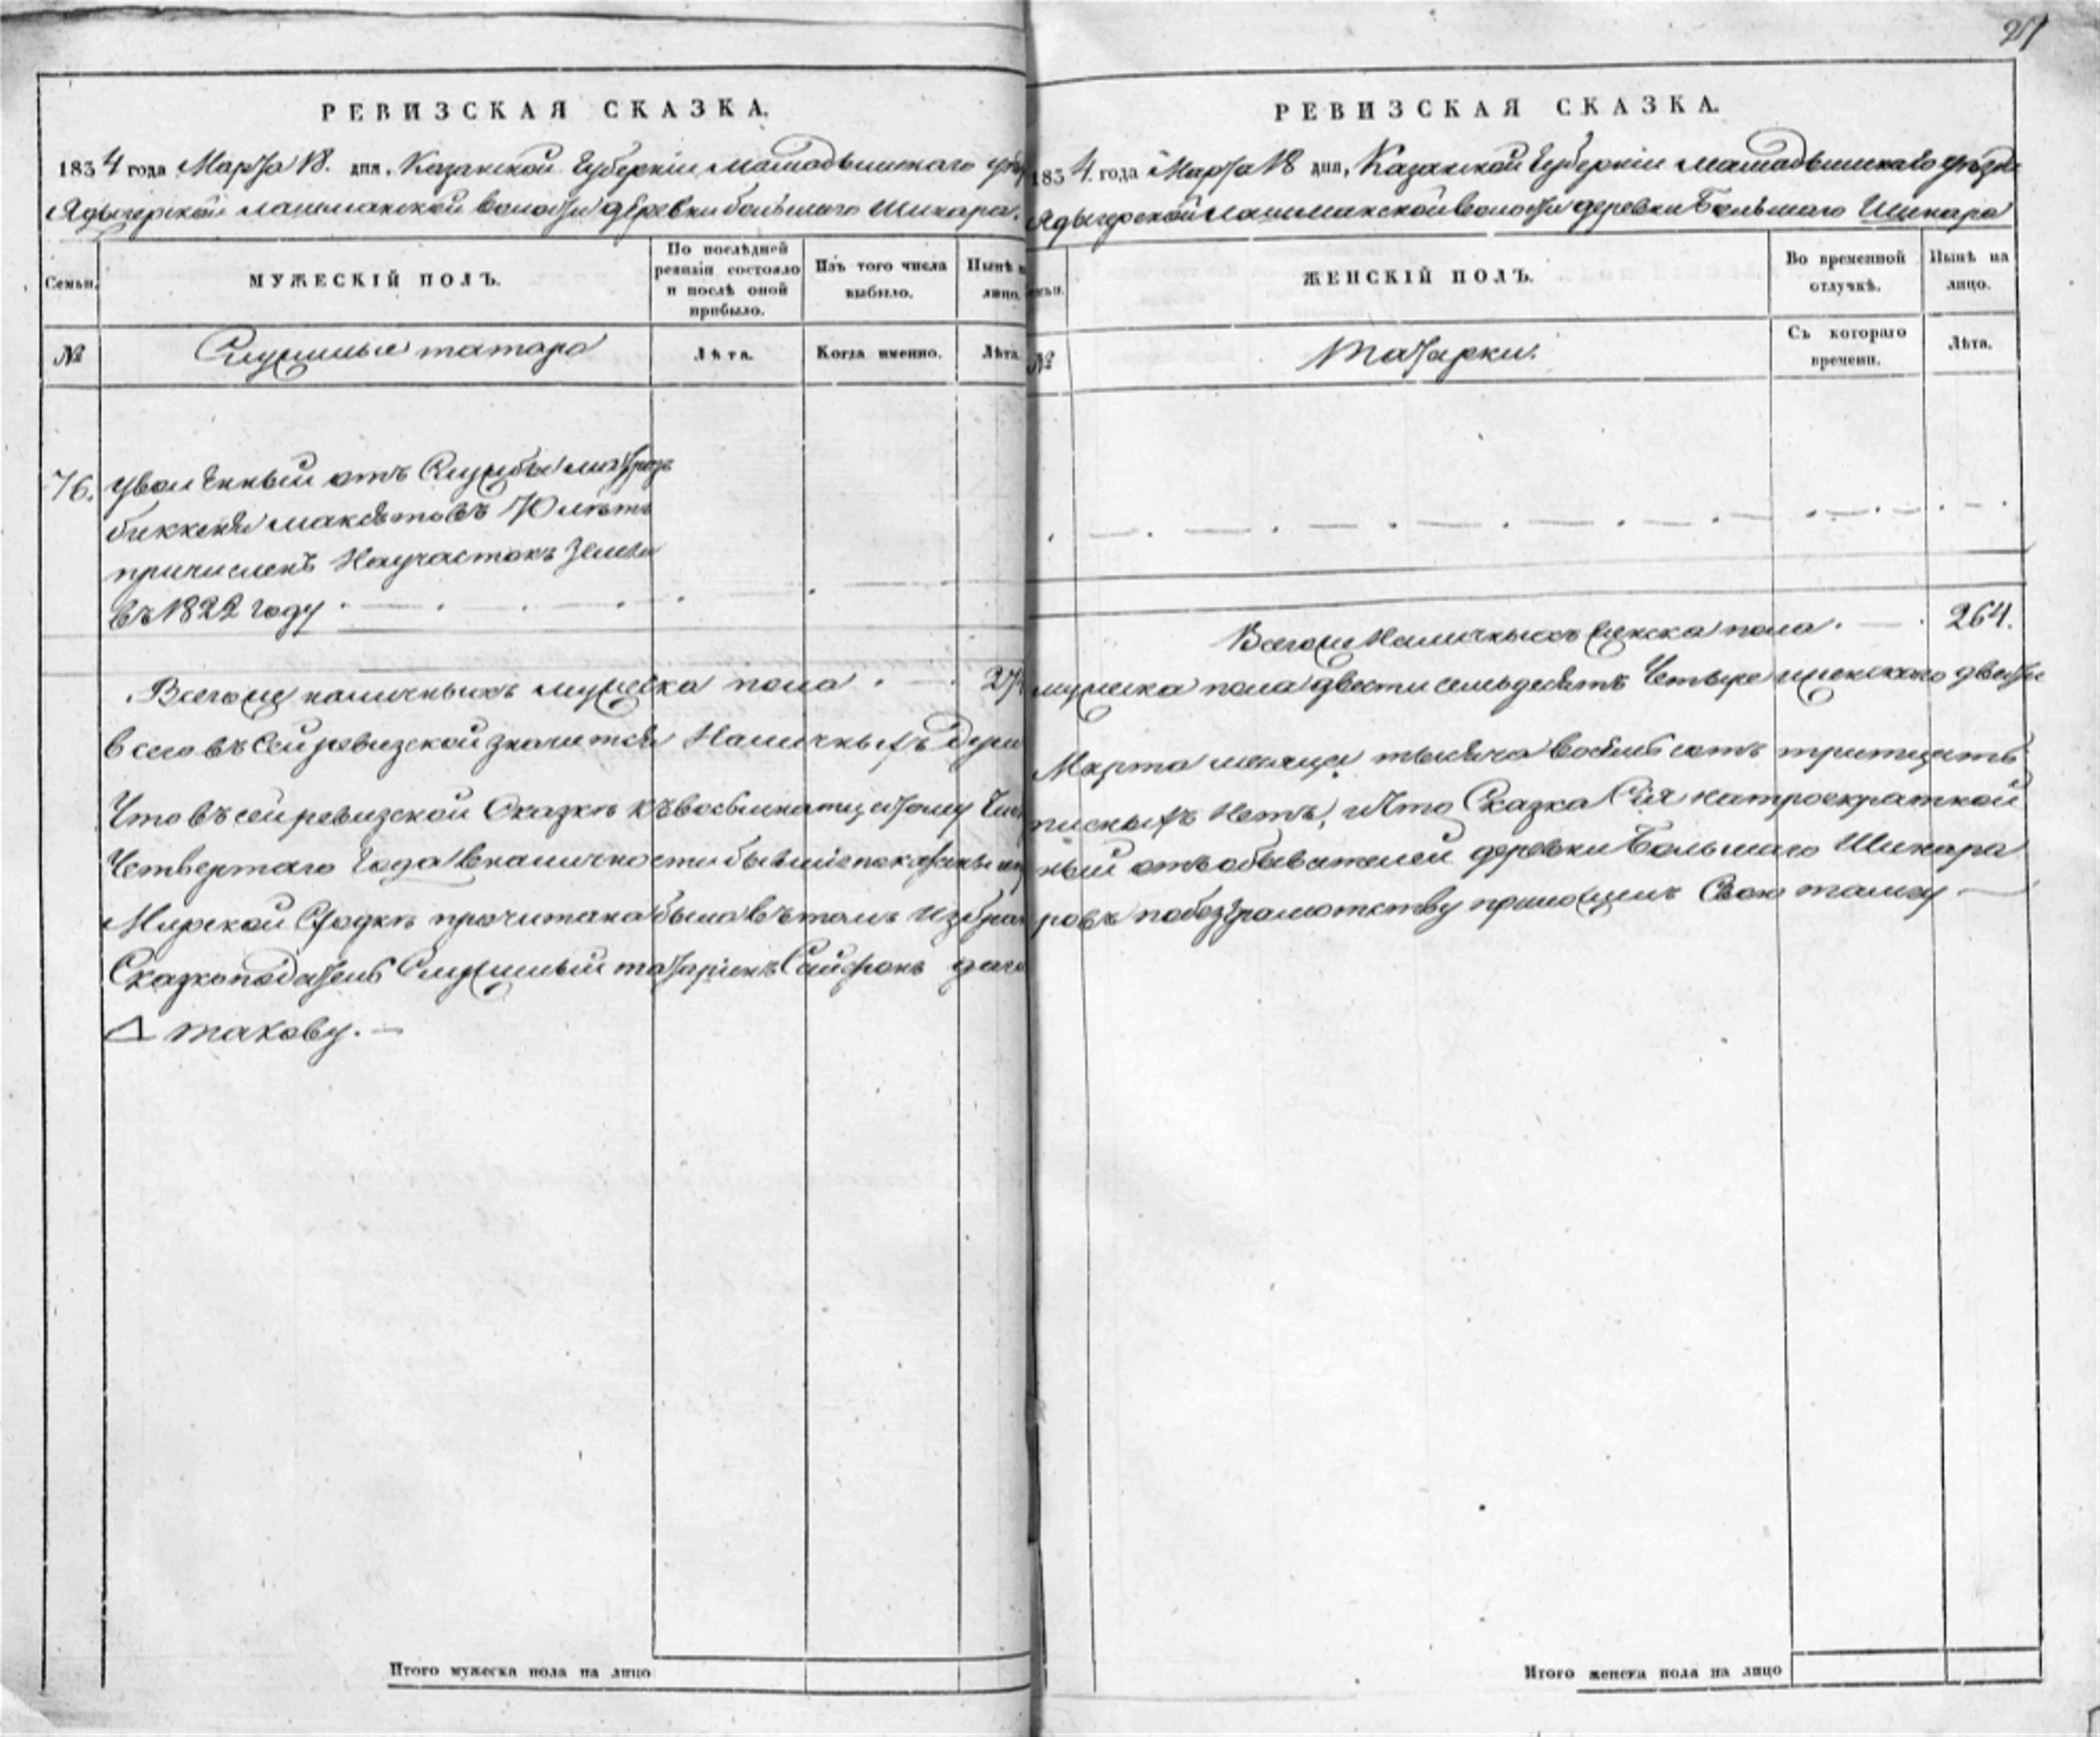 РЕВИЗСКАЯ СКАЗКА.
1834 года Марта 18. дня. Казанской Губерніи Мамадышскаго
Ядыгерской лашманской волости деревни большаго Шинара.
Семьи.
МУЖЕСКІЙ ПОЛЪ.
По послѣдней ревизіи состояло и послѣ оной прибыло.
Изъ того числа выбыло.
Нынѣ на лицо.
№
Служилые татара
Лѣта.
Когда именно.
Лѣта.
76.
уволенный отъ Службы
биккеня максютовъ 70 летъ
причисленъ На участокъ земли
въ 1822 году
Всего же наличныхъ мужеска пола 27
всего въ сей ревизской значится Наличныхъ Душ
Что въ сей ревизской Сказкѣ къ восьмнатцатому
Четвертаго Года в наличности бывшіе показаны
Мирской Сходкѣ прочитана была въ томъ
Сказкоподатель Служилый татаринъ Сайфокъ
такову.
27
РЕВИЗСКАЯ СКАЗКА.
1834. года Марта 18 дня, Казанской Губерніи Мамадышскаго уѣзда
Ядыгерской лашманской волости деревни Большаго Шинара
Семьи.
ЖЕНСКІЙ ПОЛЪ.
Во временной отлучкѣ.
Нынѣ на лицо.
№
Татарки.
Съ котораго времени.
Лѣта.
Всего же Наличныхъ Женска пола 264.
мужеска пола двести семьдесятъ Четыре женскаго двести
Марта месяца тысяча восемь сотъ тритцать
писныхъ Нетъ, и Что Сказка Сія на троекратной
ный отъ обывателей деревни Большаго Шинара
ровъ по безграмотству приложилъ Свою тамгу
Итого мужеска пола на лицо
Итого женска пола на лицо